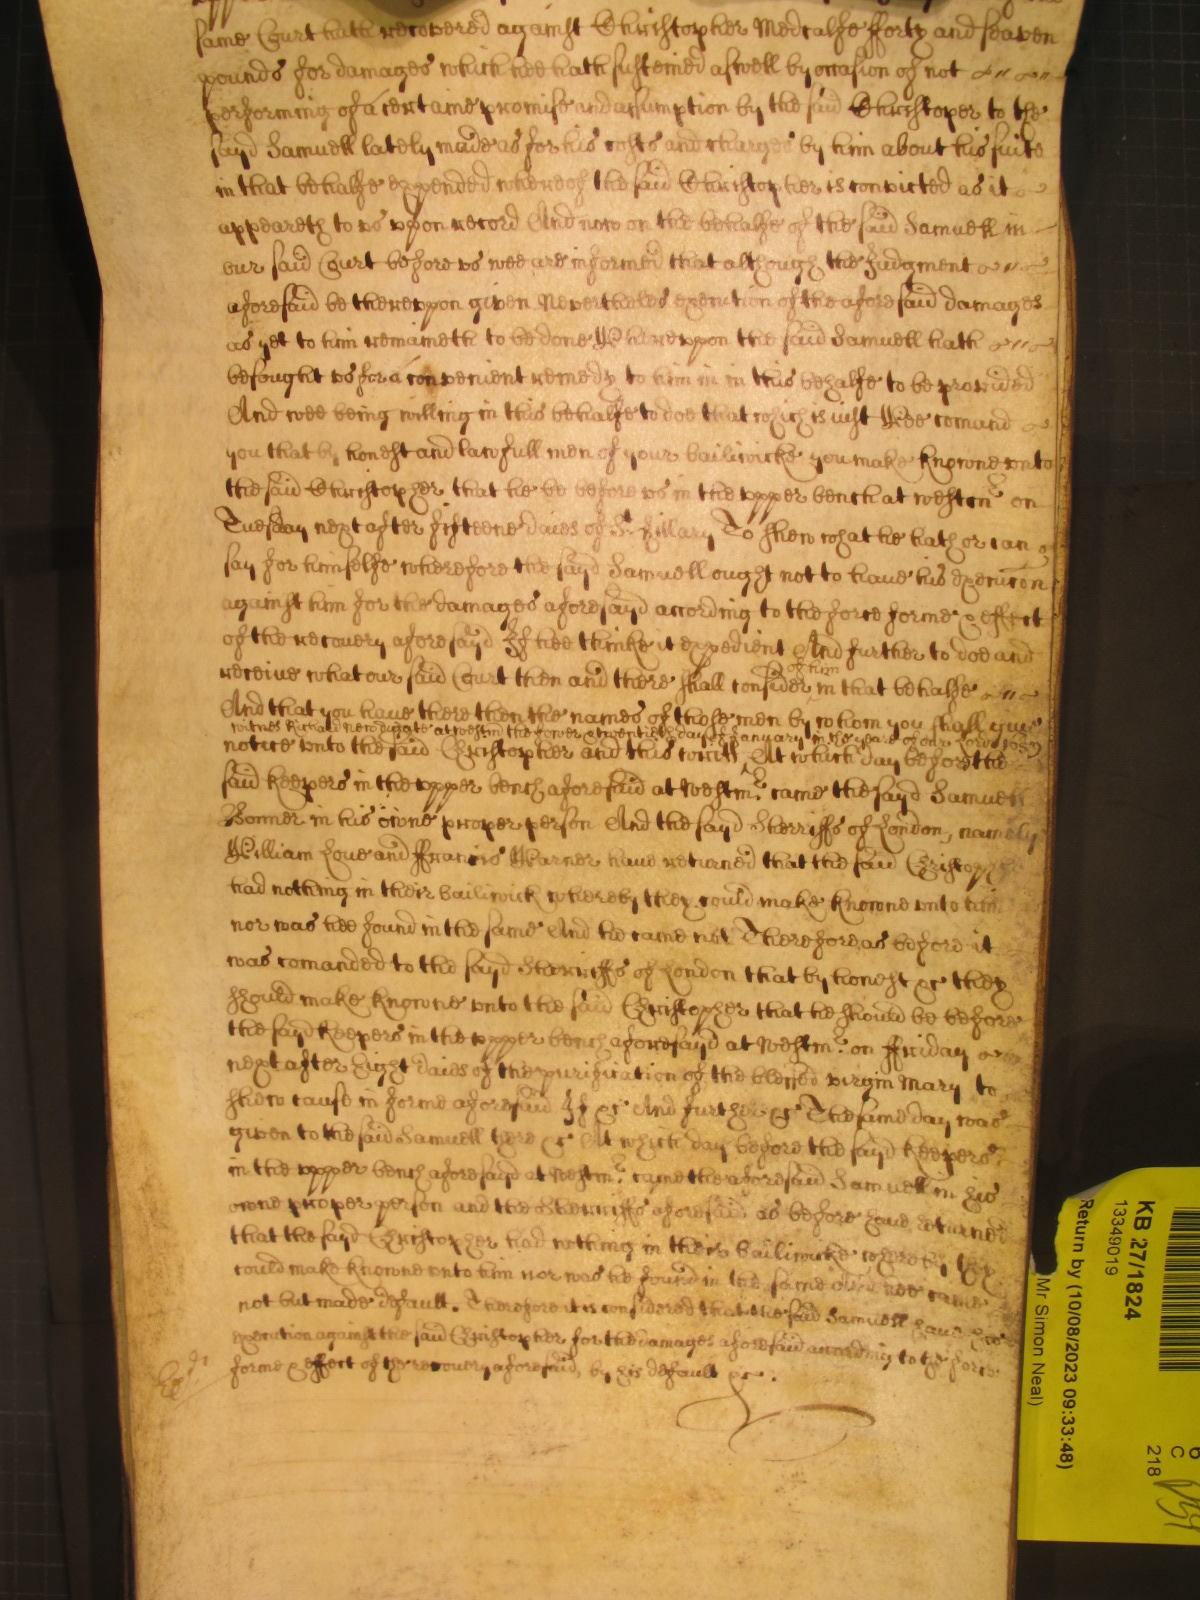 same Court hath recovered against Christopher Medcalfe fforty and seaven
pounds for damages which hee hath susteined aswell by occasion of not
performing of a certaine promise and assumption by the said Christoper to the
sayd Samuell lately made as for his costs and charges by him about his suite
in that behalfe expended whereof the said Christopher is convicted as it
appeareth to us upon record And now on the behalfe of the said Samuell in
our said Court before us wee are informed that although the Judgment
aforesaid be thereuppon given Neverthelesse execution of the aforesaid damages
as yet to him remaineth to be done Whereuppon the said Samuell hath
besought us for a convenient remedy to him in in this behalfe to be provided
And wee being willing in this behalfe to doe that which is just Wee comand
you that by honest and lawfull men of your bailiwicke you make knowne unto
the said Christopher that he be before us in the upper bench at Westmr on
Tuesday next after fifteene daies of St. Hillary To shew what he hath or can
say for himselfe wherefore the sayd Samuell ought not to have his execucon
against him for the damages aforesayd according to the force forme & effect
of the recovery aforesayd If hee thinke it expedient And further to doe and
receive what our said Court then and there shall consider of him in that behalfe
And that you have there then the names of those men by whom you shall give
witnes Richard Newdigate at Westmr the fower & twentieth day of January in the yeare of our Lord 1659
notice unto the said Christopher and this writt, At which day before the
said keepers in the upper bench aforesaid at Westmr. came the sayd Samuell
Bonner in his owne proper person And the sayd Sherriffs of London, namely
William Love and ffrancis Warner have returned that the said Christopher
had nothing in their bailiwick whereby they could make knowne unto him
nor was hee found in the same And he came not Therefore as before it
was comanded to the sayd Sherriffs of London that by honest &c they
should make knowne unto the said Christopher that he should be before
the sayd keepers in the upper bench aforesayd at Westmr. on ffriday
next after Eight daies of the purification of the blessed virgin Mary to
shew cause in forme aforesaid If &c And further &c The same day was
given to the said Samuell here &c At which day before the sayd keepers
in the upper bench aforesaid at Westmr. came the aforesaid Samuell in his
owne proper person and the Sherriffs aforesaid as before have returned
that the sayd Christopher had nothing in their bailiwicke whereby they
could make knowne unto him nor was he found in the same And hee came
not but made default. Therefore it is considered that the said Samuell have his
execution against the said Christopher for the damages aforesaid according to the force
forme & effect of the recovery aforesaid, by his default &c.
KB 27/1824
13349019
Return by (10/08/2023 09:33:48)
Mr Simon Neal)
C
218